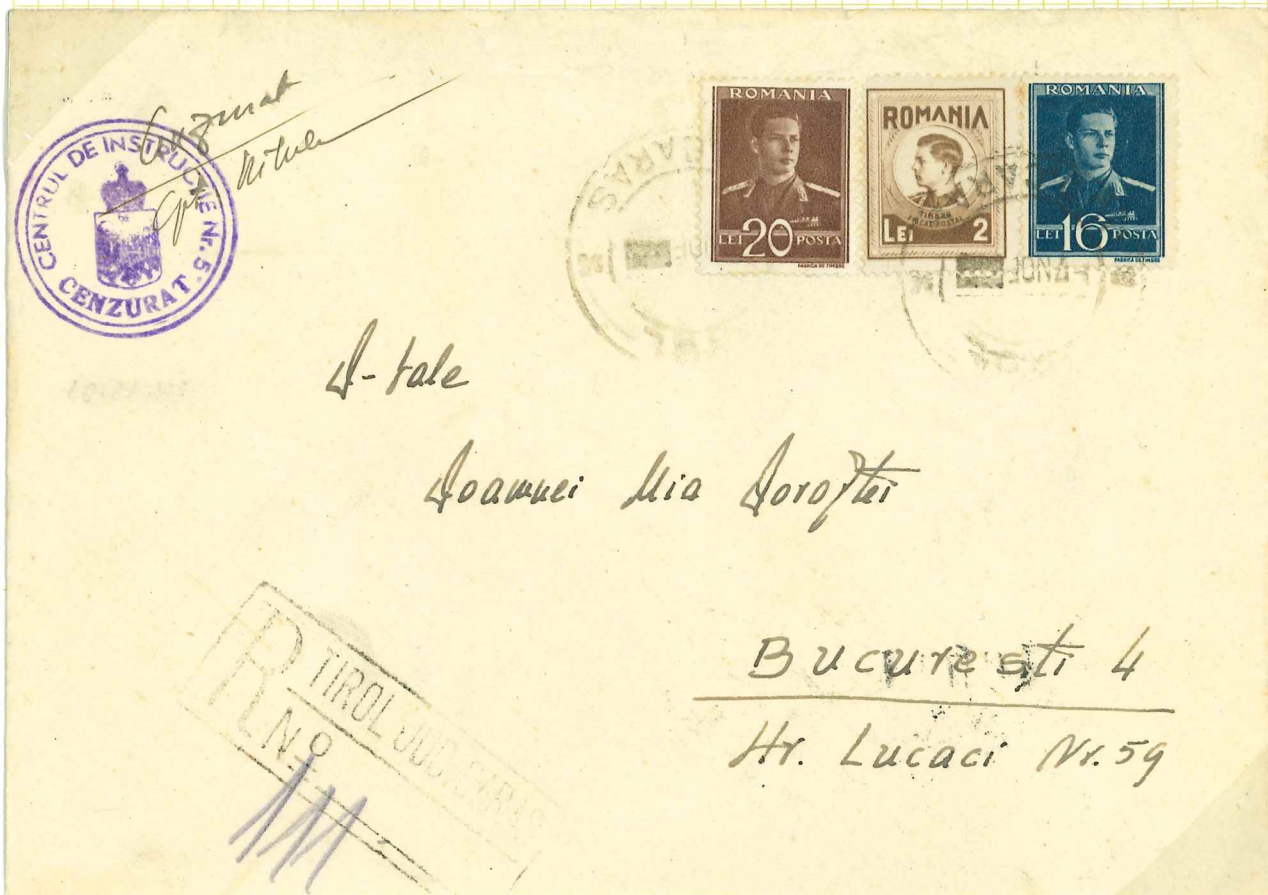 Cenzurat
CENTRUL DE INSTRUCȚIE Nr. 5.
CENZURAT
ROMANIA
LEI 20 POSTA
FABRICA DE TIMBRE
ROMANIA
TIMBRU
LEI 2
ROMANIA
LEI 16 POSTA
FABRICA DE TIMBRE
D-tale
Doamnei Mia Doroftei
București 4
Str. Lucaci Nr. 59
R TIROL JUD. CARAȘ
No
111